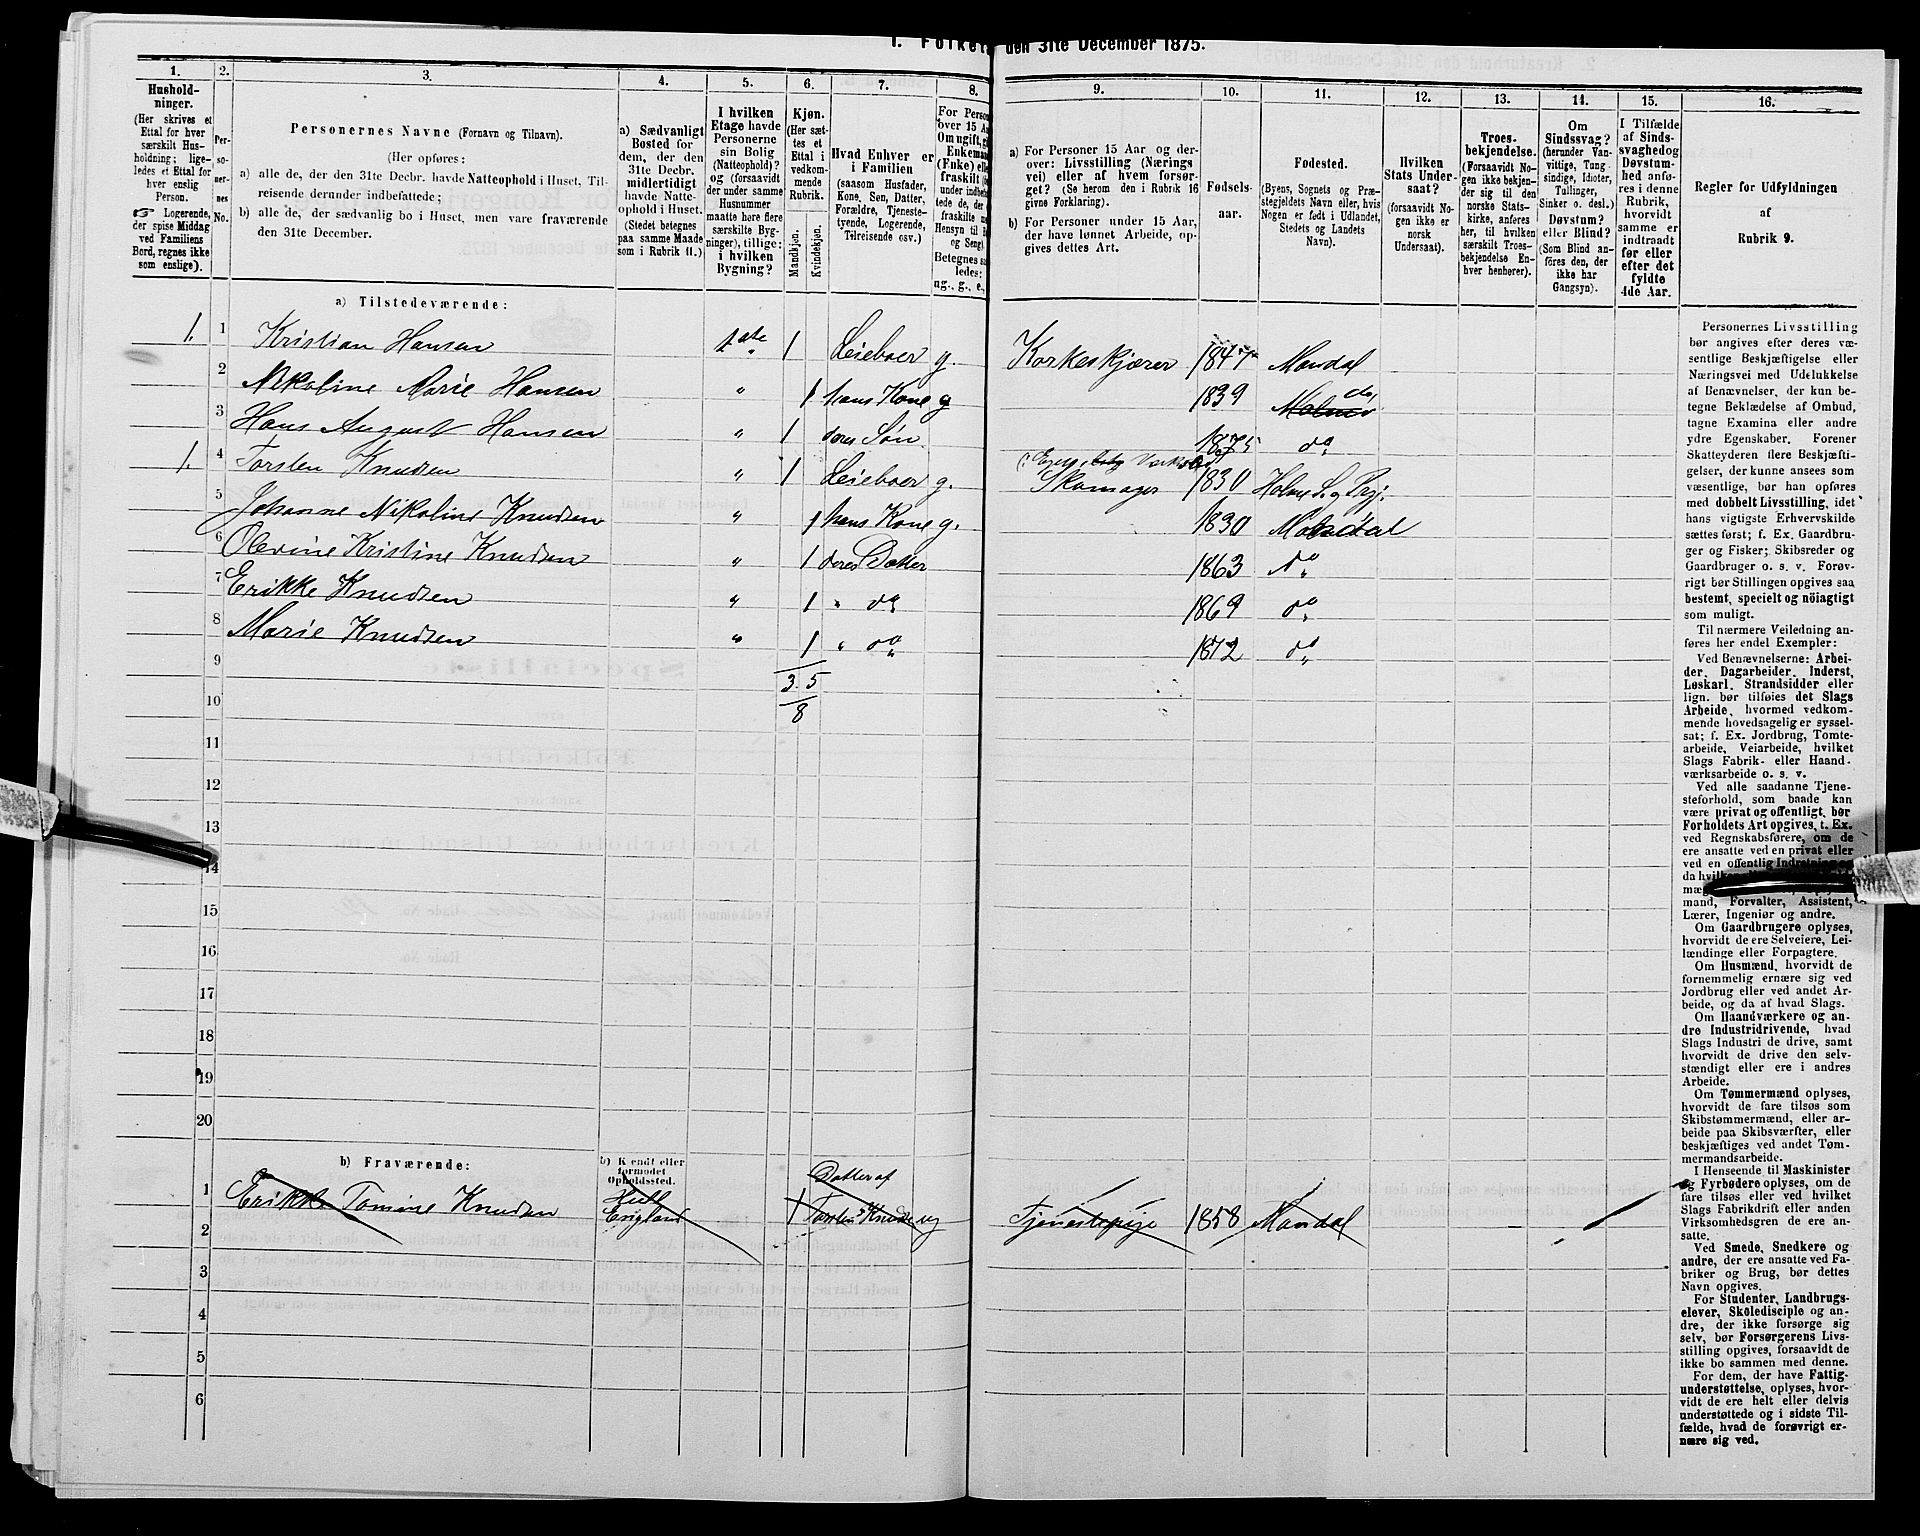 1. Folket den 31te December 1875.
1. 2. 3. 4. 5. 6. 7. 8. 9. 10. 11. 12. 13. 14. 15. 16.
Hushold-
ninger.
(Her skrives et
Ettal for hver
særskilt Hus-
holdning; lige-
ledes et Ettal for
hver enslig
Person.
☞ Logerende,
der spise Middag
ved Familiens
Bord, regnes ikke
som enslige).
Per-
so-
ner-
nes
No.
Personernes Navne (Fornavn og Tilnavn).
(Her opføres:
a) alle de, der den 31te Decbr. havde Natteophold i Huset, Til-
reisende derunder indbefattede;
b) alle de, der sædvanlig bo i Huset, men vare fraværende
den 31te December.
a) Sædvanligt
Bosted for
dem, der den
31te Decbr.
midlertidigt
havde Natte-
ophold i Huset.
(Stedet betegnes
paa samme Maade
som i Rubrik 11.)
I hvilken
Etage havde
Personerne
sin Bolig
(Natteophold)?
og (forsaavidt
der under samme
Husnummer
maatte høre flere
særskilte Byg-
ninger), tillige:
i hvilken
Bygning?
Kjøn.
(Her sæt-
tes et
Ettal i
vedkom-
mende
Rubrik.
Mandkjøn.
Kvindekjøn.
Hvad Enhver er
i Familien
(saasom Husfader,
Kone, Søn, Datter,
Forældre, Tjeneste-
tyende, Logerende,
Tilreisende osv.).
For Person
over 15 Aa
Om ugift, g
Enkeman
(Fnke) ell
fraskilt (o
under indbe
tede de, d
fraskilte m
Hensyn til B
og Seng).
Betegnes sa
ledes:
ug., g., e.,
a) For Personer 15 Aar og der-
over: Livsstilling (Nærings
vei) eller af hvem forsør-
get? (Se herom den i Rubrik 16
givne Forklaring).
b) For Personer under 15 Aar,
der have lønnet Arbeide, op-
gives dettes Art.
Fødsels-
aar.
Fødested.
(Byens, Sognets og Præ-
stegjeldets Navn eller, hvis
Nogen er født i Udlandet,
Stedets og Landets
Navn).
Hvilken
Stats Under-
saat?
(forsaavidt No-
gen ikke er
norsk
Undersaat).
Troes-
bekjendelse.
(Forsaavidt No-
gen ikke bekjen-
der sig til den
norske Stats-
kirke, anføres
her, til hvilken
særskilt Troes-
bekjendelse En-
hver henhører).
Om
Sindssvag?
(herunder Van-
vittige, Tung-
sindige, Idioter,
Tullinger,
Sinker o. desl.)
Døvstum?
eller Blind?
(Som Blind an-
føres den, der
ikke har
Gangsyn).
I Tilfælde
af Sinds-
svaghed og
Døvstum-
hed anfø-
res i denne
Rubrik,
hvorvidt
samme er
indtraadt
før eller
efter det
fyldte
4de Aar.
Regler for Udfyldningen
af
Rubrik 9.
a) Tilstedeværende:
1. 1 Kristian Hansen 1ste 1 Leieboer g. Korkeskjærer 1847 Mandal
2 Nikoline Marie Hansen " 1 hans Kone g 1839 do,
3 Hans August Hansen " 1 deres Søn 1875 do
1. 4 Torsten Knudsen " 1 Leieboer g. Skomager 1830 Holme S. og Prgj.
5 Johanne Nikoline Knudsen " 1 hans Kone g. 1830 Mandal
6 Olevine Kristine Knudsen " 1 deres Datter 1863 do
7 Erikke Knudsen " 1 " do 1869 do
8 Marie Knudsen " 1 " do 1872 do
9 3 5
10 8
11
12
13
14
15
16
17
18
19
20
b) Fraværende:
b) Kendt eller
formodet
Opholdssted.
1 Erikke Tomine Knudsen Hull England 1 Datter af Torsten Knuds. ug Tjenestepige 1858 Mandal
2
3
4
5
6
Personernes Livsstilling
bør angives efter deres væ-
sentlige Beskjæftigelse eller
Næringsvei med Udelukkelse
af Benævnelser, der kun be-
tegne Beklædelse af Ombud,
tagne Examina eller andre
ydre Egenskaber. Forener
Skatteyderen flere Beskjæfti-
gelser, der kunne ansees som
væsentlige, bør han opføres
med dobbelt Livsstilling, idet
hans vigtigste Erhvervskilde
sættes først; f. Ex. Gaardbru-
ger og Fisker; Skibsreder og
Gaardbruger o. s. v. Forøv-
rigt bør Stillingen opgives saa
bestemt, specielt og nöiagtigt
som muligt.
Til nærmere Veiledning an-
føres her endel Exempler:
Ved Benævnelserne: Arbei-
der, Dagarbeider, Inderst,
Løskarl, Strandsidder eller
lign. bør tilføies det Slags
Arbeide, hvormed vedkom-
mende hovedsagelig er syssel-
sat; f. Ex. Jordbrug, Tomte-
arbeide, Veiarbeide, hvilket
Slags Fabrik- eller Haand-
værksarbeide o. s. v.
Ved alle saadanne Tjene-
steforhold, som baade kan
være privat og offentligt, bør
Forholdets Art opgives, t. Ex.
ved Regnskabsførere, om de
ere ansatte ved en privat eller
ved en offentlig
mand, Forvalter, Assistent,
Lærer, Ingeniør og andre.
Om Gaardbrugere oplyses,
hvorvidt de ere Selveiere, Lei-
lændinge eller Forpagtere.
Om Husmænd, hvorvidt de
fornemmelig ernære sig ved
Jordbrug eller ved andet Ar-
beide, og da af hvad Slags.
Om Haandværkere og an-
dre Industridrivende, hvad
Slags Industri de drive, samt
hvorvidt de drive den selv-
stændigt eller ere i andres
Arbeide.
Om Tømmermænd oplyses,
hvorvidt de fare tilsøs som
Skibstømmermænd, eller ar-
beide paa Skibsværfter, eller
beskjæftiges ved andet Tøm-
mermandsarbeide.
I Henseende til Maskinister
og Fyrbødere oplyses, om de
fare tilsøs eller ved hvilket
Slags Fabrikdrift eller anden
Virksomhedsgren de ere an-
satte.
Ved Smede, Snedkere og
andre, der ere ansatte ved Fa-
briker og Brug, bør dettes
Navn opgives.
For Studenter, Landbrugs-
elever, Skoledisciple og an-
dre, der ikke forsørge sig
selv, bør Forsørgerens Livs-
stilling opgives, forsaavidt de
ikke bo sammen med denne.
For dem, der have Fattig-
understøttelse, oplyses, hvor-
vidt de ere helt eller delvis
understøttede og i sidste Til-
fælde, hvad de forøvrigt er-
nære sig ved.